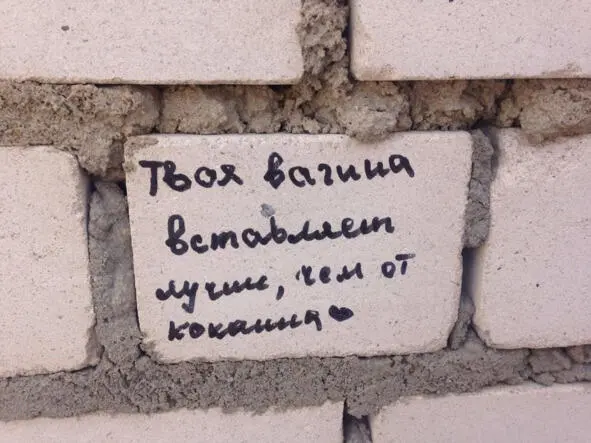 Твоя вагина
вставляет
лучше, чем от
кокаина